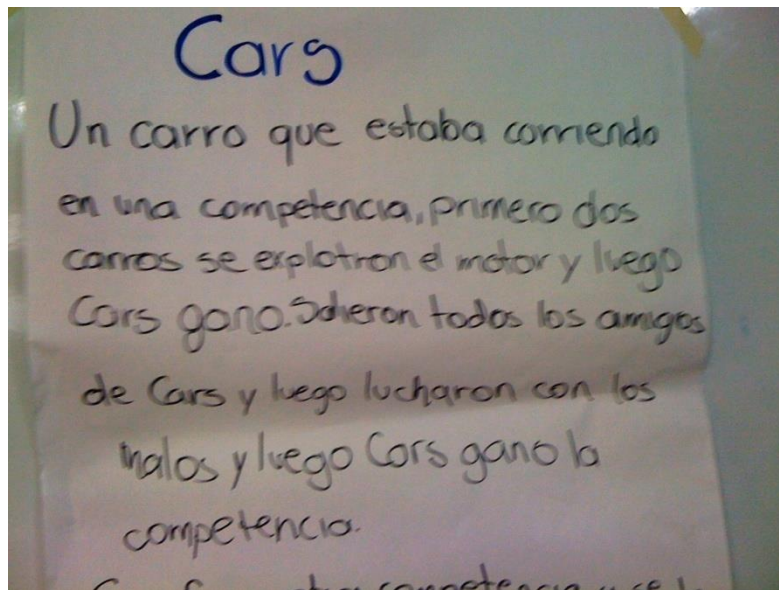 Cars
Un carro que estaba corriendo
en una competencia, primero dos
carros se explotron el motor y luego
Cars gano. Salieron todos los amigos
de Cars y luego lucharon con los
malos y luego Cars gano la
competencia.
competencia y se